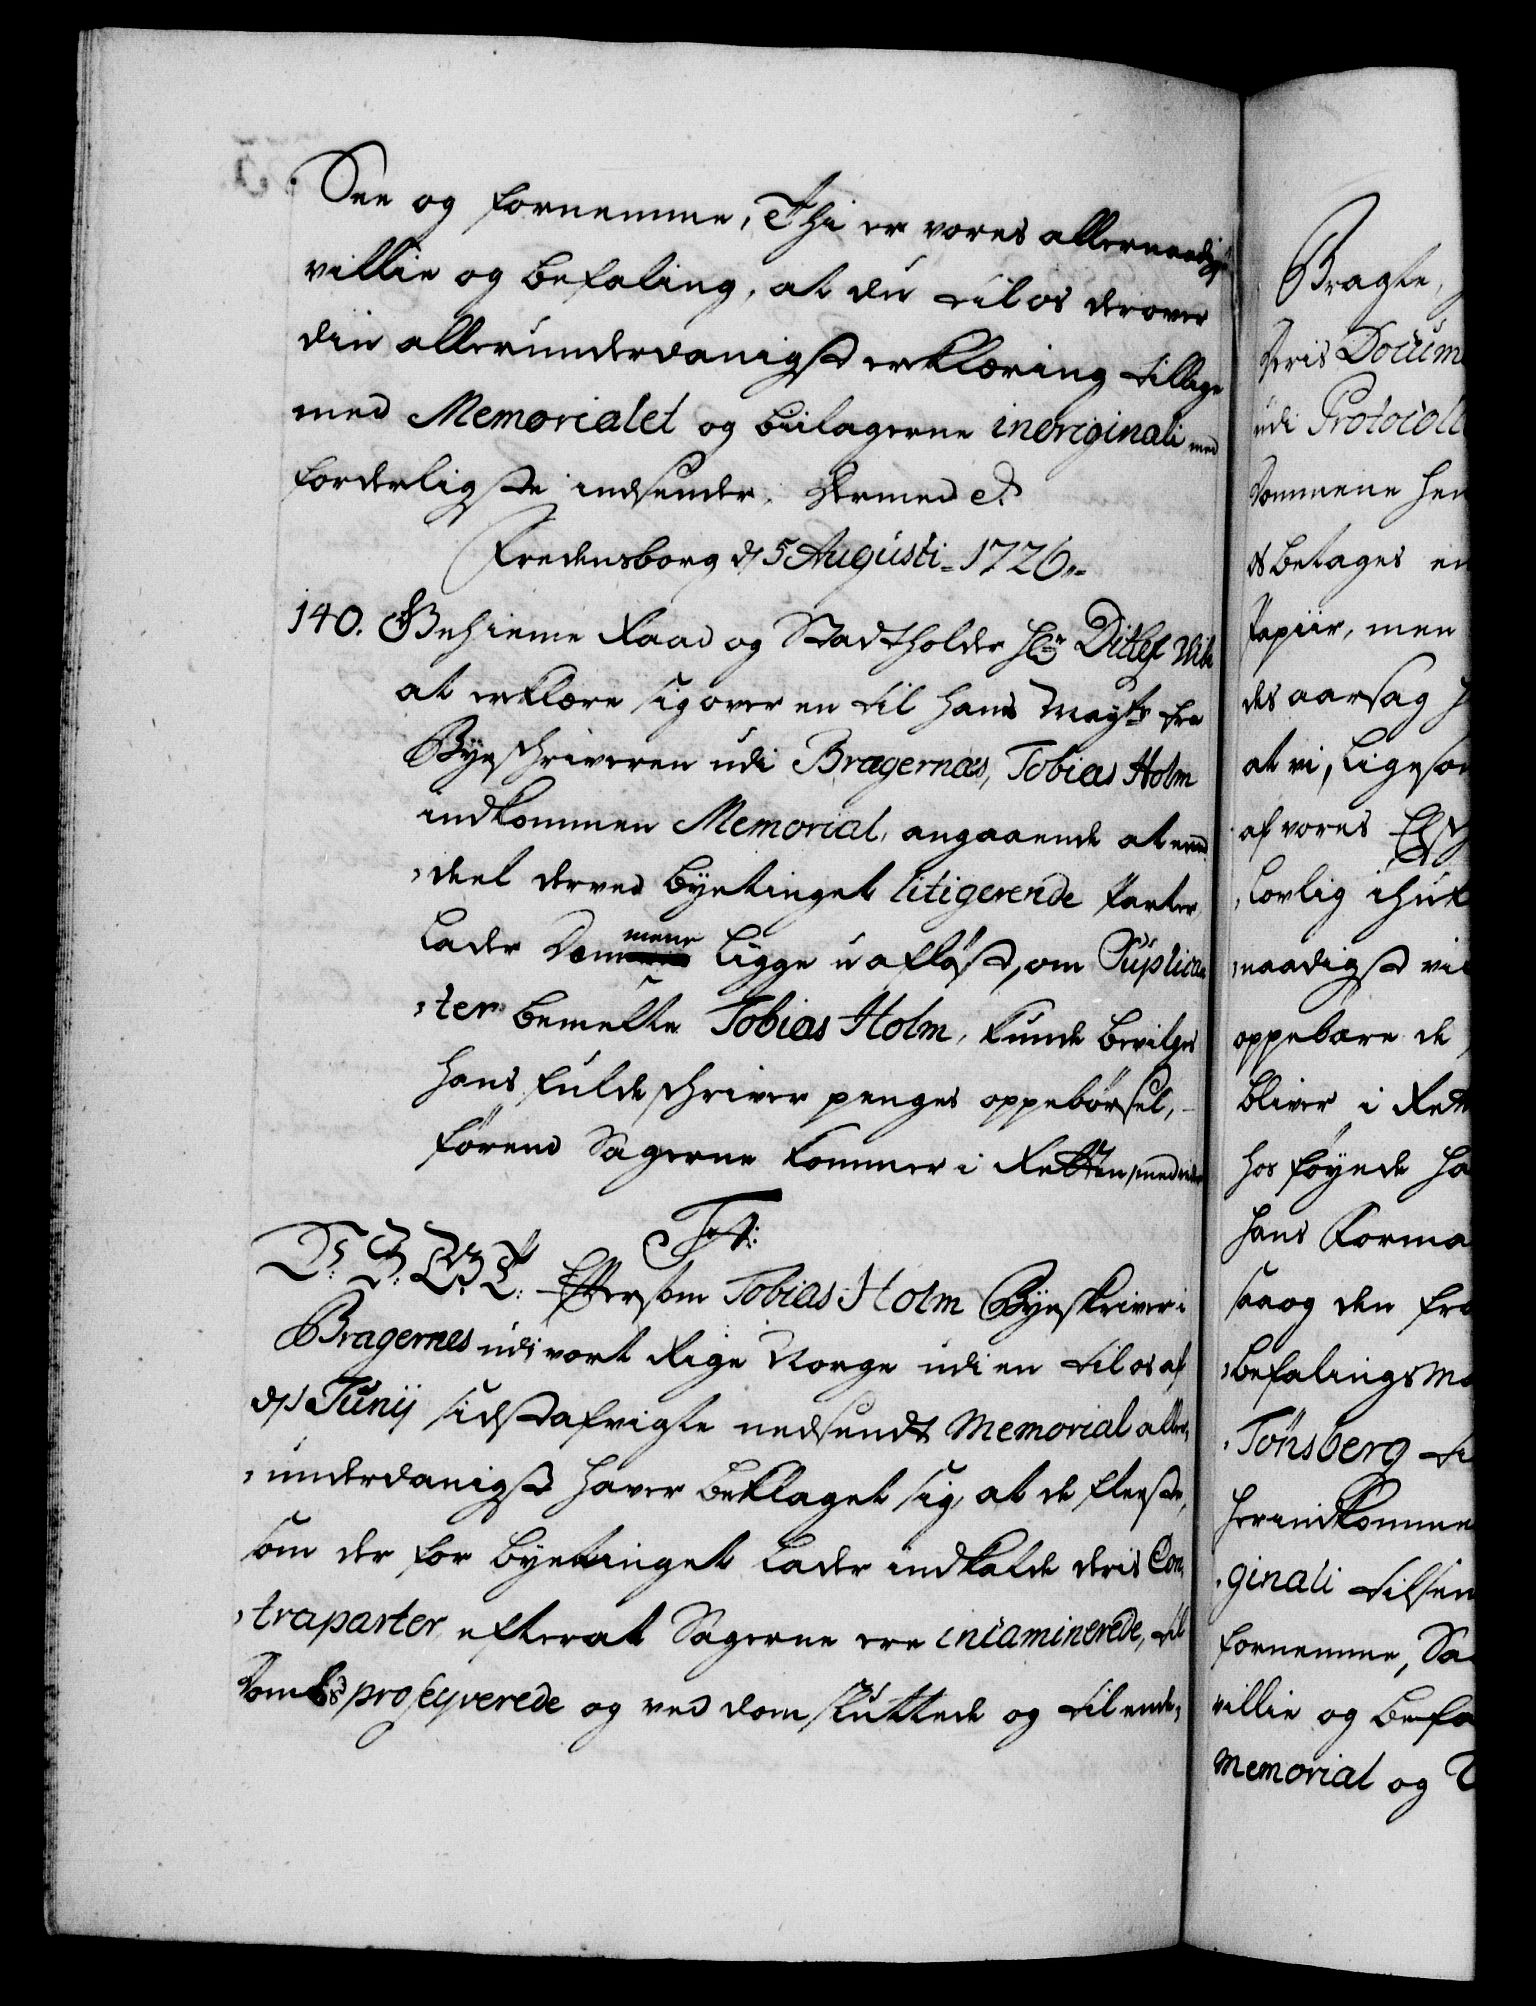 See og fornemme, Thi er vores allernaadigst
villie og befaling, at du til os derover
din allerunderdanigst erklæring tillige
med Memorialet og bielagerne in originali med
forderligste indsender. Hermed &.
Fredensborg d/ 5 Augusti 1726.
140. Geheime Raad og Stadtholder Hr Ditlef Wibe
at erklære sig over en til Hans Mayts fra
Byeschriveren udi Bragernæs, Tobias Holm
indkommen Memorial, angaaende at een
deel derved byetinget litigerende Parter
lader Dommene ligge uafløst, om Suplican-
ten bemelte Tobias Holm, kunde bevilges
hans fulde schriver penges oppebørsel,
førend Sagerne kommer i Retten, med videre
Tit:
D. F. W. G. T: Eftersom Tobias Holm Byeskriver i
Bragernes udi vort Rige Norge udi en til os af
d/ 1 Junij sidstafvigte nedsendt Memorial aller-
underdanigst haver beklaget sig, at de fleeste,
som der for byetinget lader indkalde deris Con-
traparter, efterat Sagerne ere incaminerede, til
Doms proseqverede og ved dom sluttede og til ende-
Bragte,
deris Docum
udi Protocoll
Dommene hen
betages en
Papiir, men
des aarsag
at vi, ligesom
af vores
lovlig
naadigst vil
oppebære de
bliver i Rett
hos føyede
hans Forma
saa og den fra
befalingsma
Tønsberg
herindkomme
ginali tilsen
fornemme, Sa
villie og befa
Memorial og